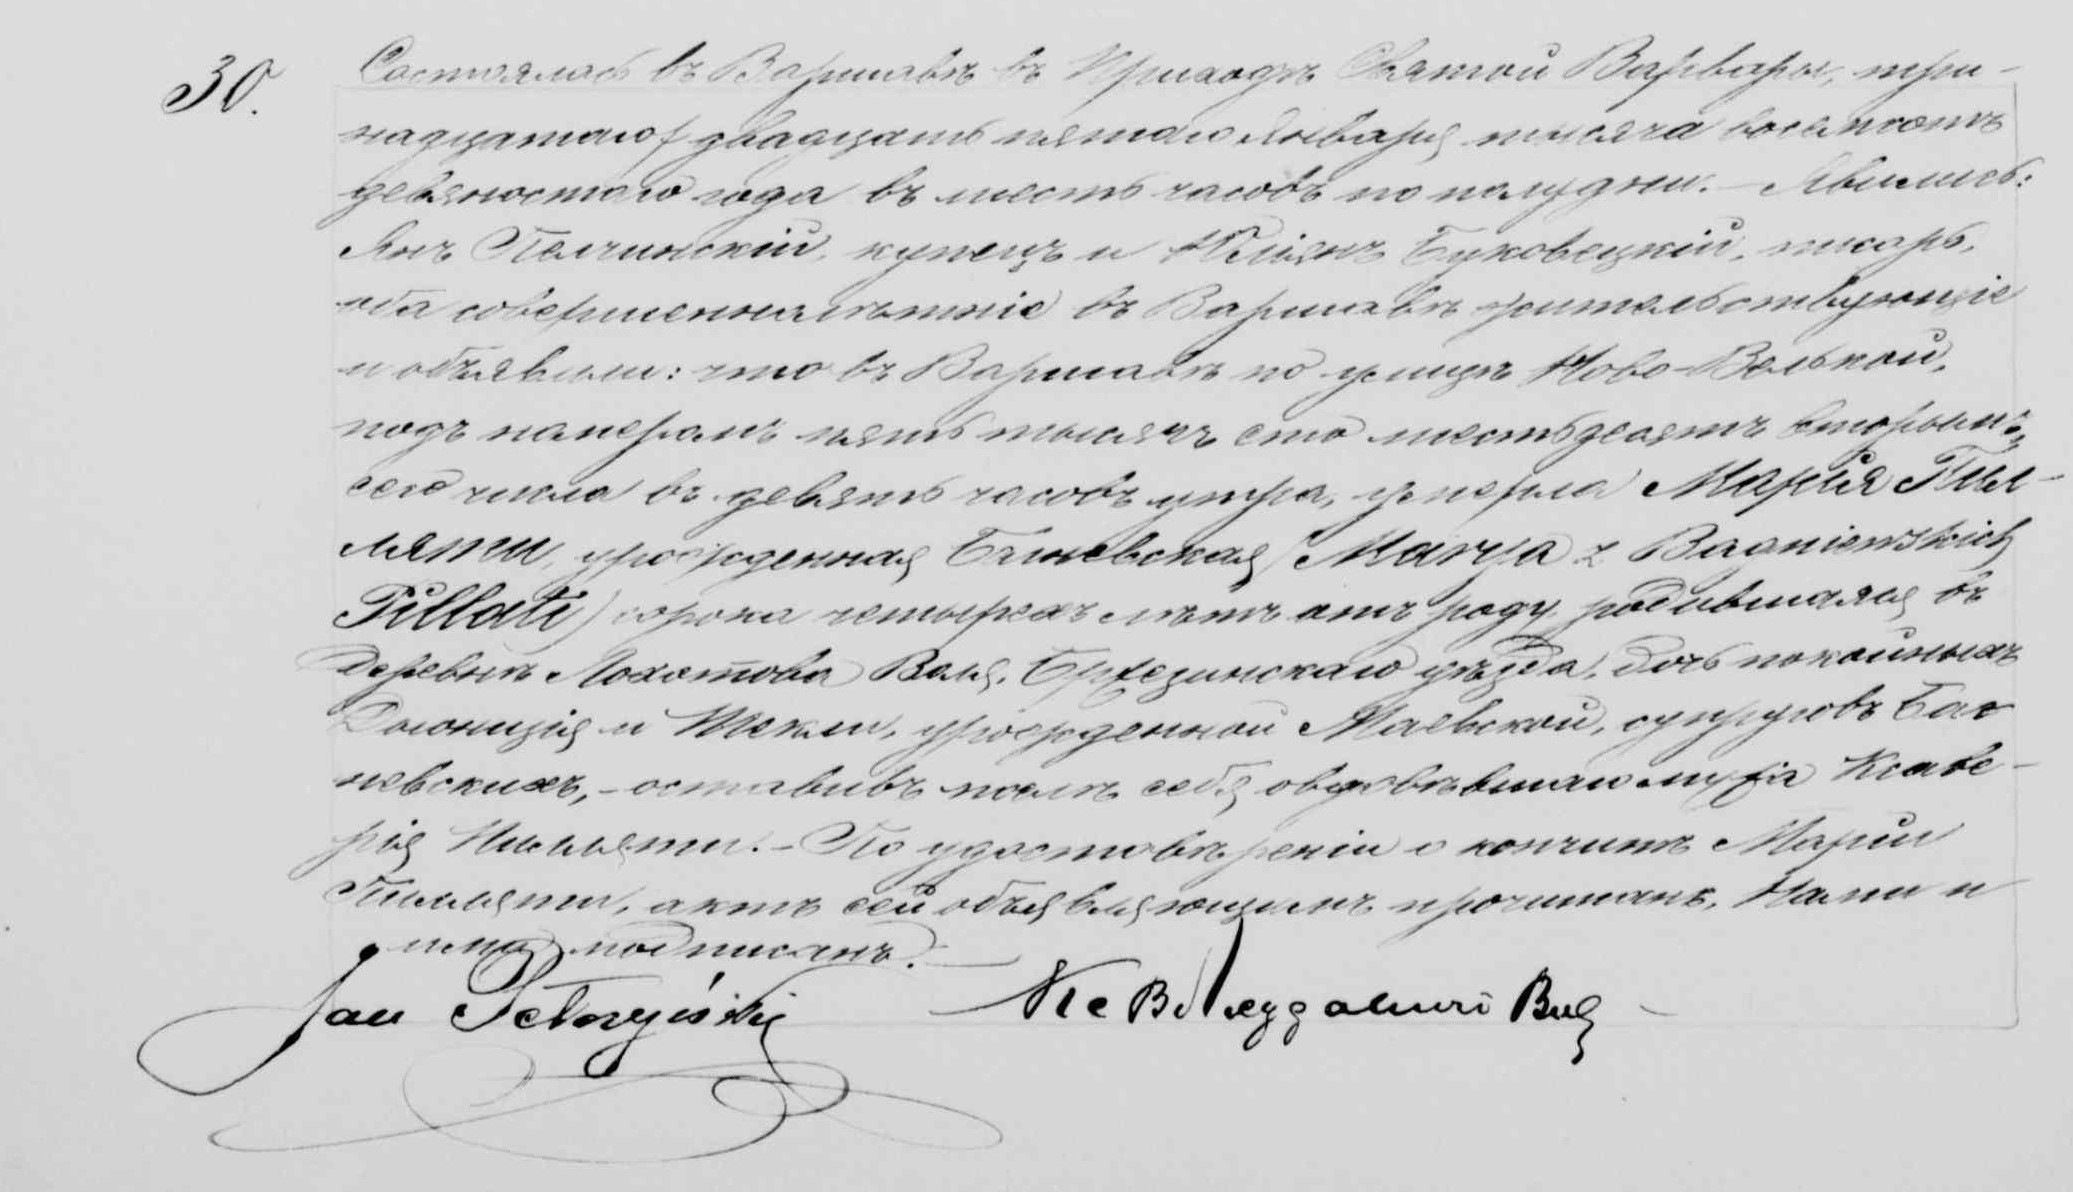 30. Состоялось въ Варшавѣ въ Приходѣ Святой Варвары, три-
надцатаго/двадцать пятаго Января тысяча восемьсотъ
девяностаго года въ шесть часовъ по полудни. – Явились:
Янъ Пелчинскій, купецъ и Буковецкій, писарь,
оба совершеннолѣтніе въ Варшавѣ жительствующіе
и объявили: что въ Варшавѣ по улицѣ Ново-Велькой,
подъ номеромъ пять тысячъ сто шестьдесятъ вторымъ,
сего числа въ девять часовъ утра, умерла Марія Пил-
ляти, урожденная Багневская (Marya z Bagniewskich
Pillati) сорока четырехъ лѣтъ отъ роду, родившаяся въ
деревнѣ Воля, Брезинскаго уѣзда, дочь покойныхъ
Діонизія и Теклы, урожденной Маевской, супруговъ Баг-
невскихъ, – оставивъ послѣ себя овдовѣвшаго мужа Ксаве-
рія Пилляти. – По удостовѣреніи о кончинѣ Маріи
Пилляти, актъ сей объявляющимъ прочитанъ, Нами и
ими подписанъ. –
Jan Pełczyński